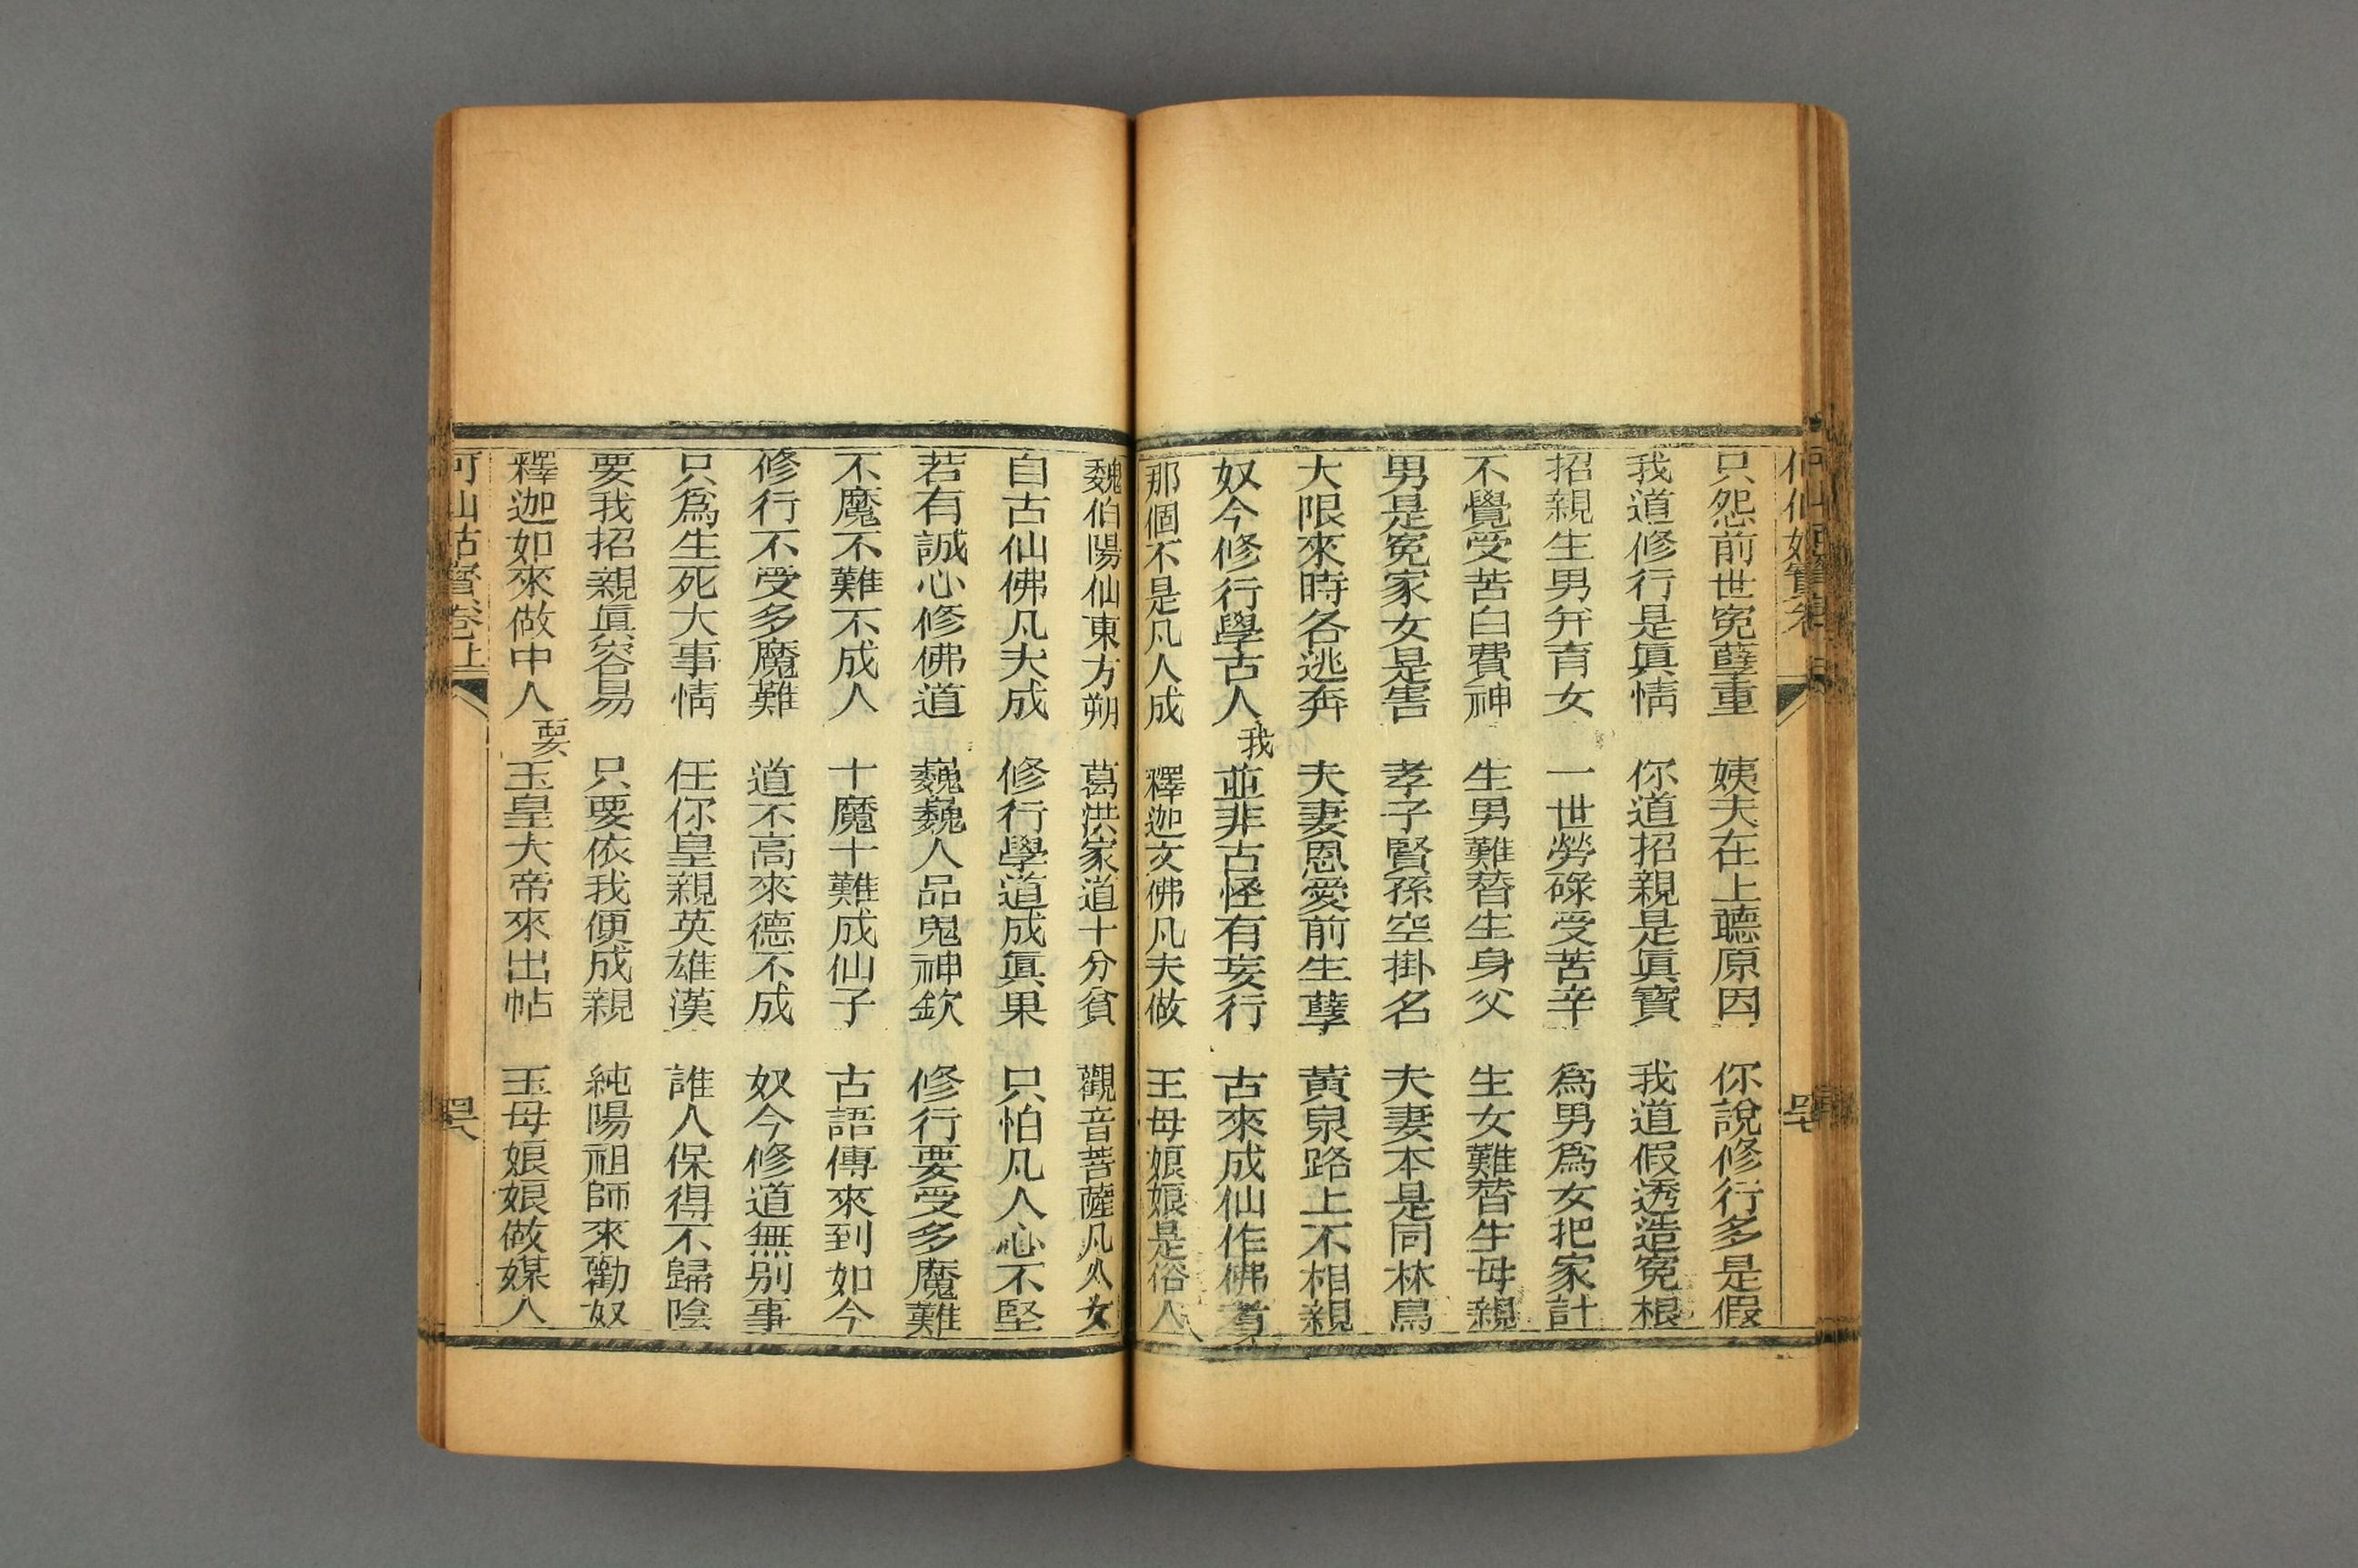 只怨前世冤孽重 姨夫在上聽原因 你說修行多是假
我道修行是眞情 你道招親是眞寶 我道假透造冤根
招親生男弁育女 一世勞碌受苦辛 爲男爲女把家計
不覺受苦白費神 生男難替生身父 生女難替生母親
男是冤家女是害 孝子賢孫空掛名 夫妻本是同林鳥
大限來時各逃奔 夫妻恩愛前生孽 黃泉路上不相親
奴今修行學古人 我並非古怪有妄行 古來成仙作佛者
那個不是凡人成 釋迦文佛凡夫做 王母娘娘是俗人
魏伯陽仙東方朔 葛洪家道十分貧 觀音菩薩凡人女
自古仙佛凡夫成 修行學道成眞果 只怕凡人心不堅
若有誠心修佛道 巍巍人品鬼神欽 修行要受多魔難
不魔不難不成人 十魔十難成仙子 古語傳來到如今
修行不受多魔難 道不高來德不成 奴今修道無別事
只爲生死大事情 任你皇親英雄漢 誰人保得不歸陰
要我招親眞容易 只要依我便成親 純陽祖師來勸奴
釋迦如來做中人 要玉皇大帝來出帖 王母娘娘做媒人
卷上